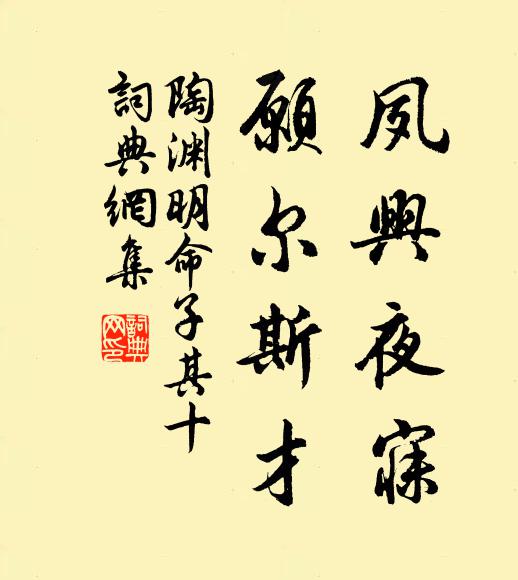 夙興夜寐
願尔斯才
陶渊明命子其十
詞典網集
詞典网印